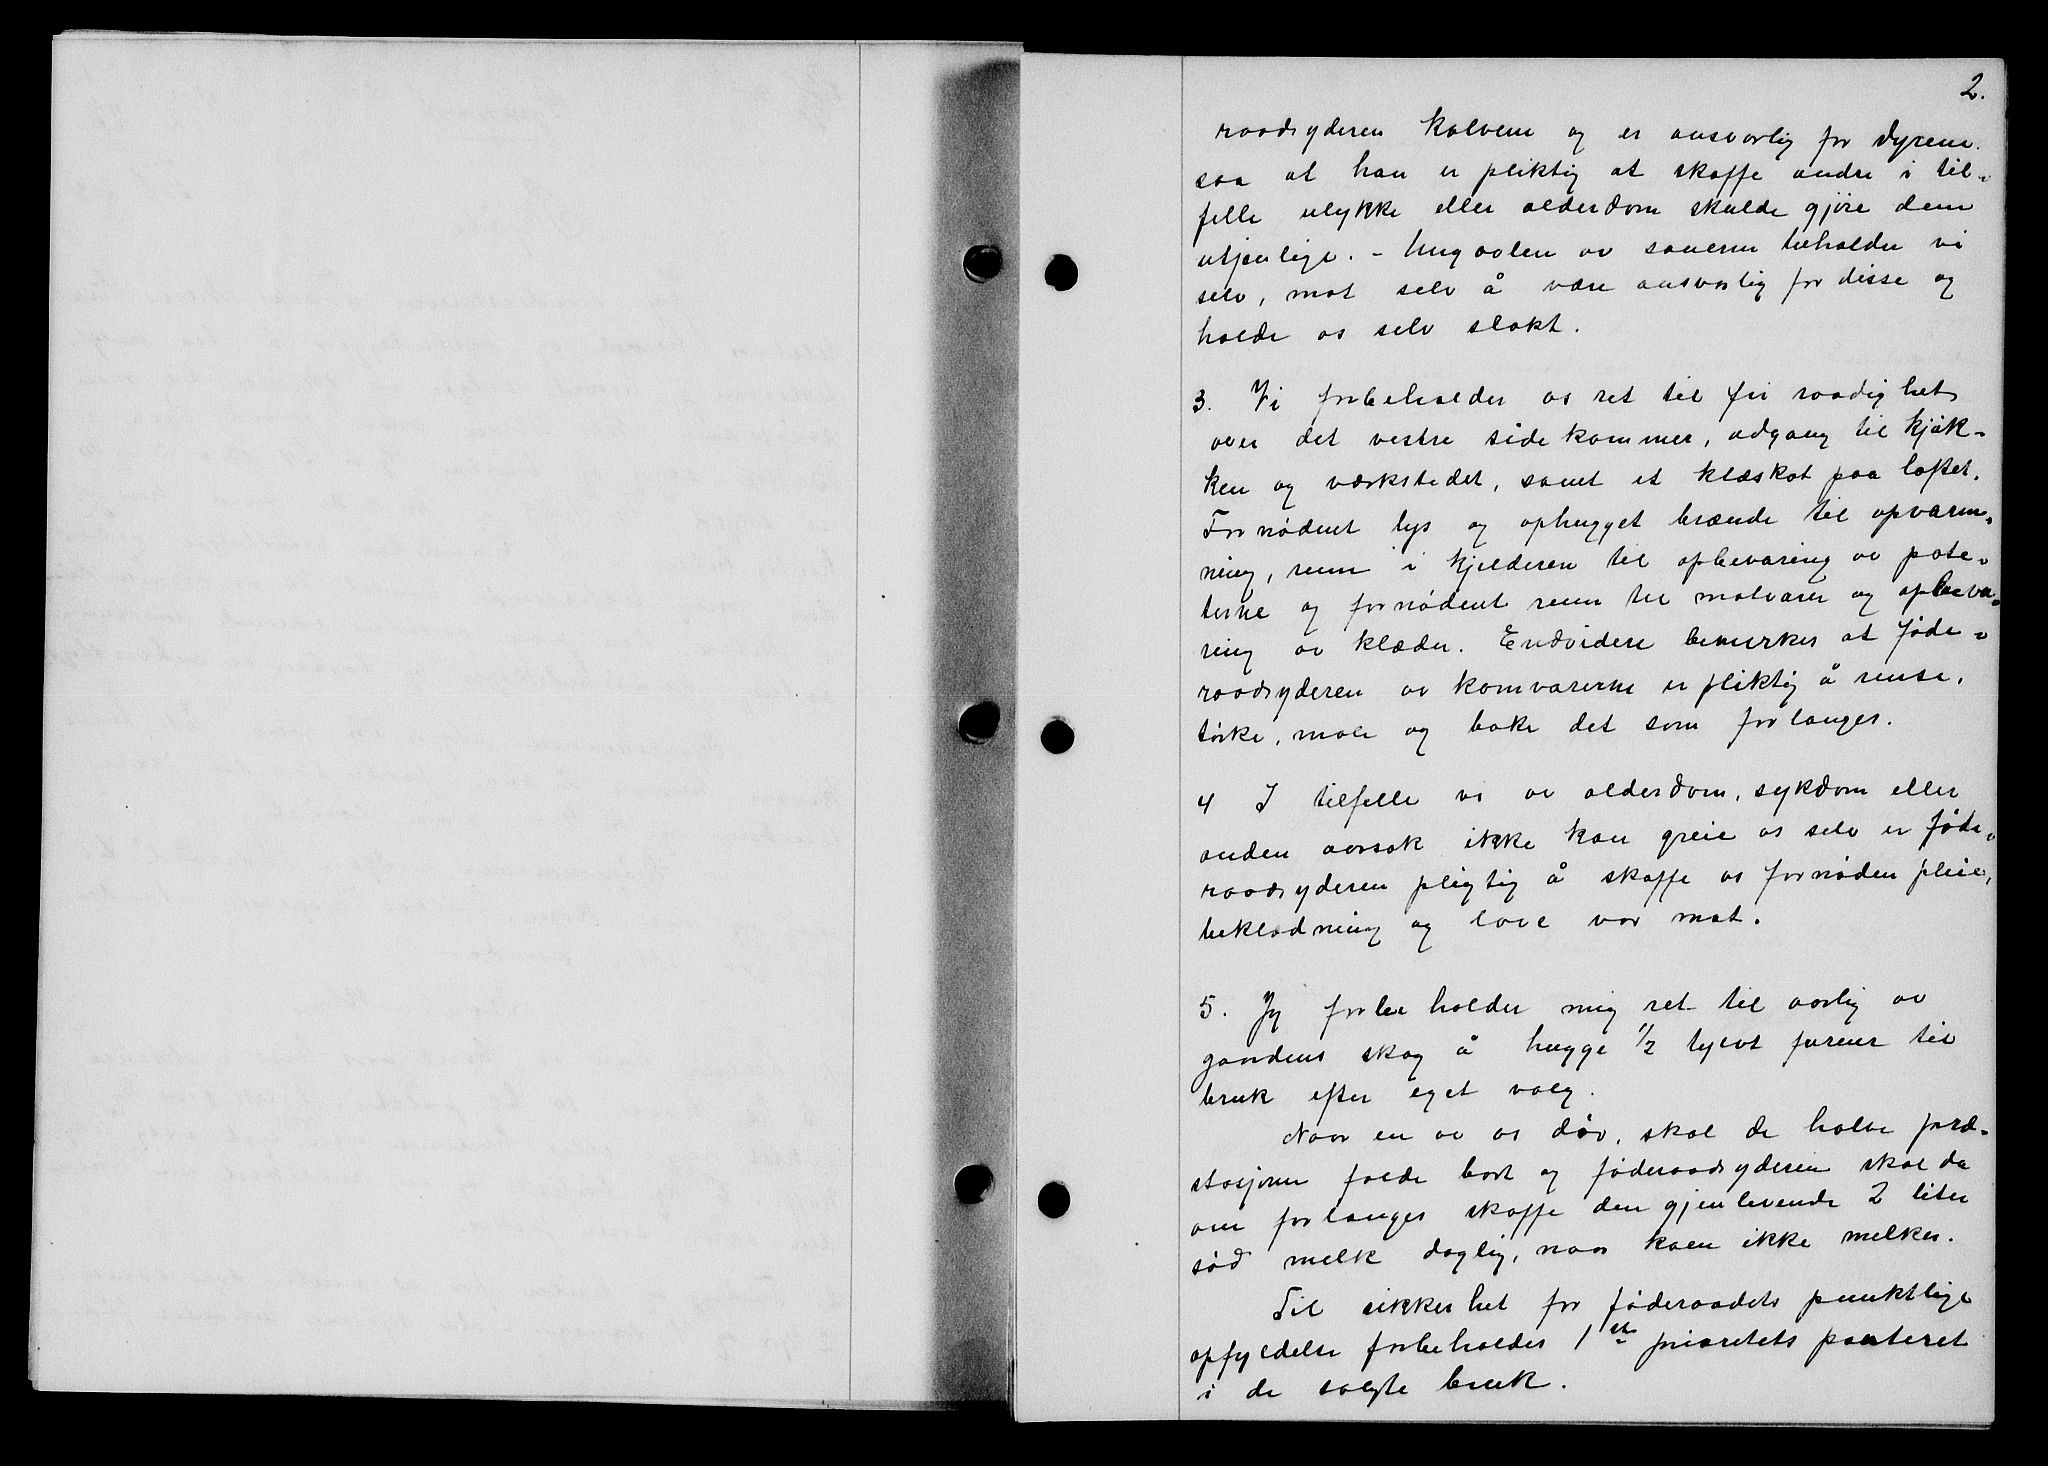 2.
raadsyderen kalvene og er ansvarlig for dyrene.
saa at han er pliktig at skaffe andre i til-
felle ulykke eller alderdom skulde gjøre dem
utjenlige. - Ungavlen av sauerne beholder vi
selv, mot selv å være ansvarlig for disse og
holde os selv slakt.
3. Vi forbeholder os ret til fri raadighet
over det vestre sidekammer, adgang til kjøk-
ken og værkstedet, samt et klæskot paa loftet.
Fornødent lys og ophugget brænde til opvarm-
ning, rum i kjelderen til opbevaring av pote-
terne og fornødent rum til matvarer og opbeva-
ring av klæder. Endvidere bemerkes at føde-
raadsyderen av kornvarerne er pliktig å rense,
tørke, male og bake det som forlanges.
4 I tilfelle vi av alderdom, sykdom eller
anden aarsak ikke kan greie os selv er føde-
raadsyderen pligtig å skaffe os fornøden pleie,
beklædning og lave vor mat.
5. Jeg forbeholder mig ret til aarlig av
gaardens skog å hugge 1/2 tylvt furuer til
bruk efter eget valg.
Naar en av os dør, skal de halve præ-
stasjoner falde bort og føderaadsyderen skal da
om forlanges skaffe den gjenlevende 2 liter
sød melk daglig, naar koen ikke melker.
Til sikkerhet for føderaadets punktlige
opfyldelse forbeholdes 1ste prioritets panteret
i de solgte bruk.